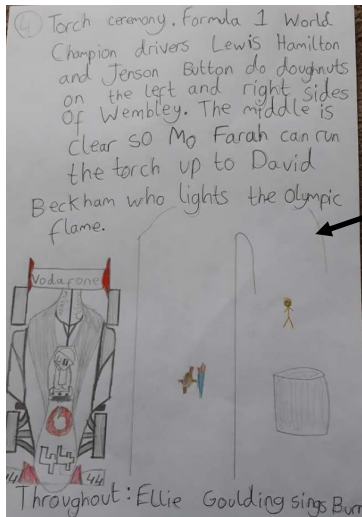 4 Torch ceremony. Formula 1 World
Champion drivers Lewis Hamilton
and Jenson Button do doughnuts
on the left and right sides
of Wembley. The middle is
clear so Mo Farah can run
the torch up to David
Beckham who lights the Olympic
flame.
Vodafone
44
44
44
Throughout: Ellie Goulding sings Burn